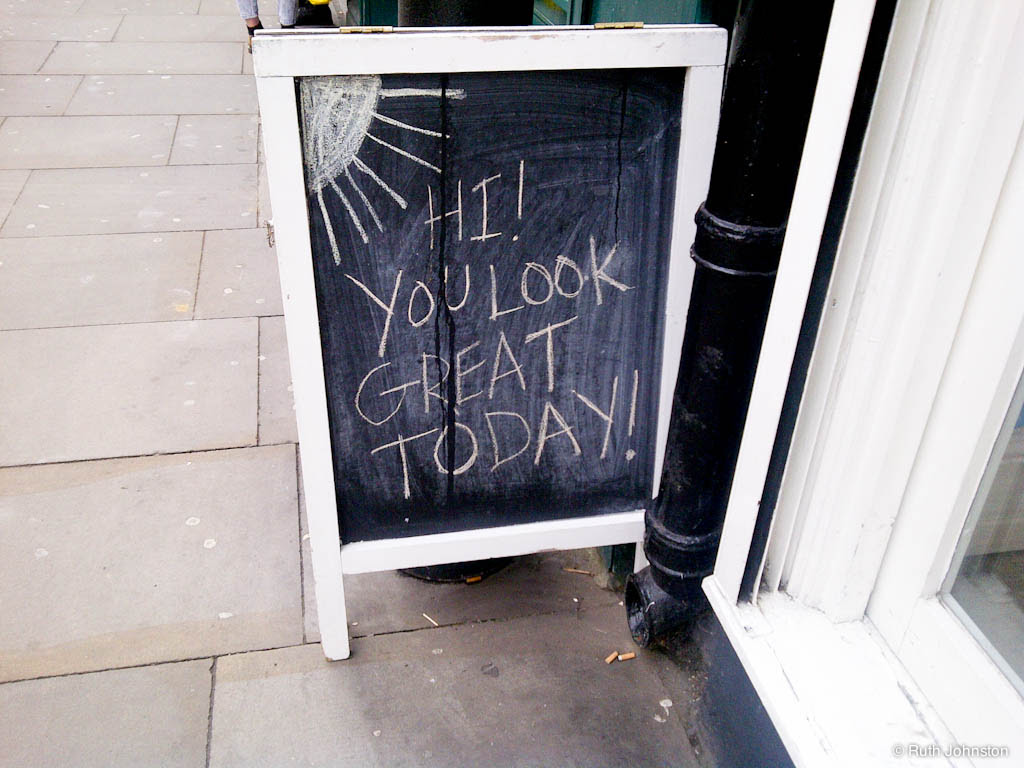 HI!
YOU LOOK
GREAT
TODAY!
© Ruth Johnston